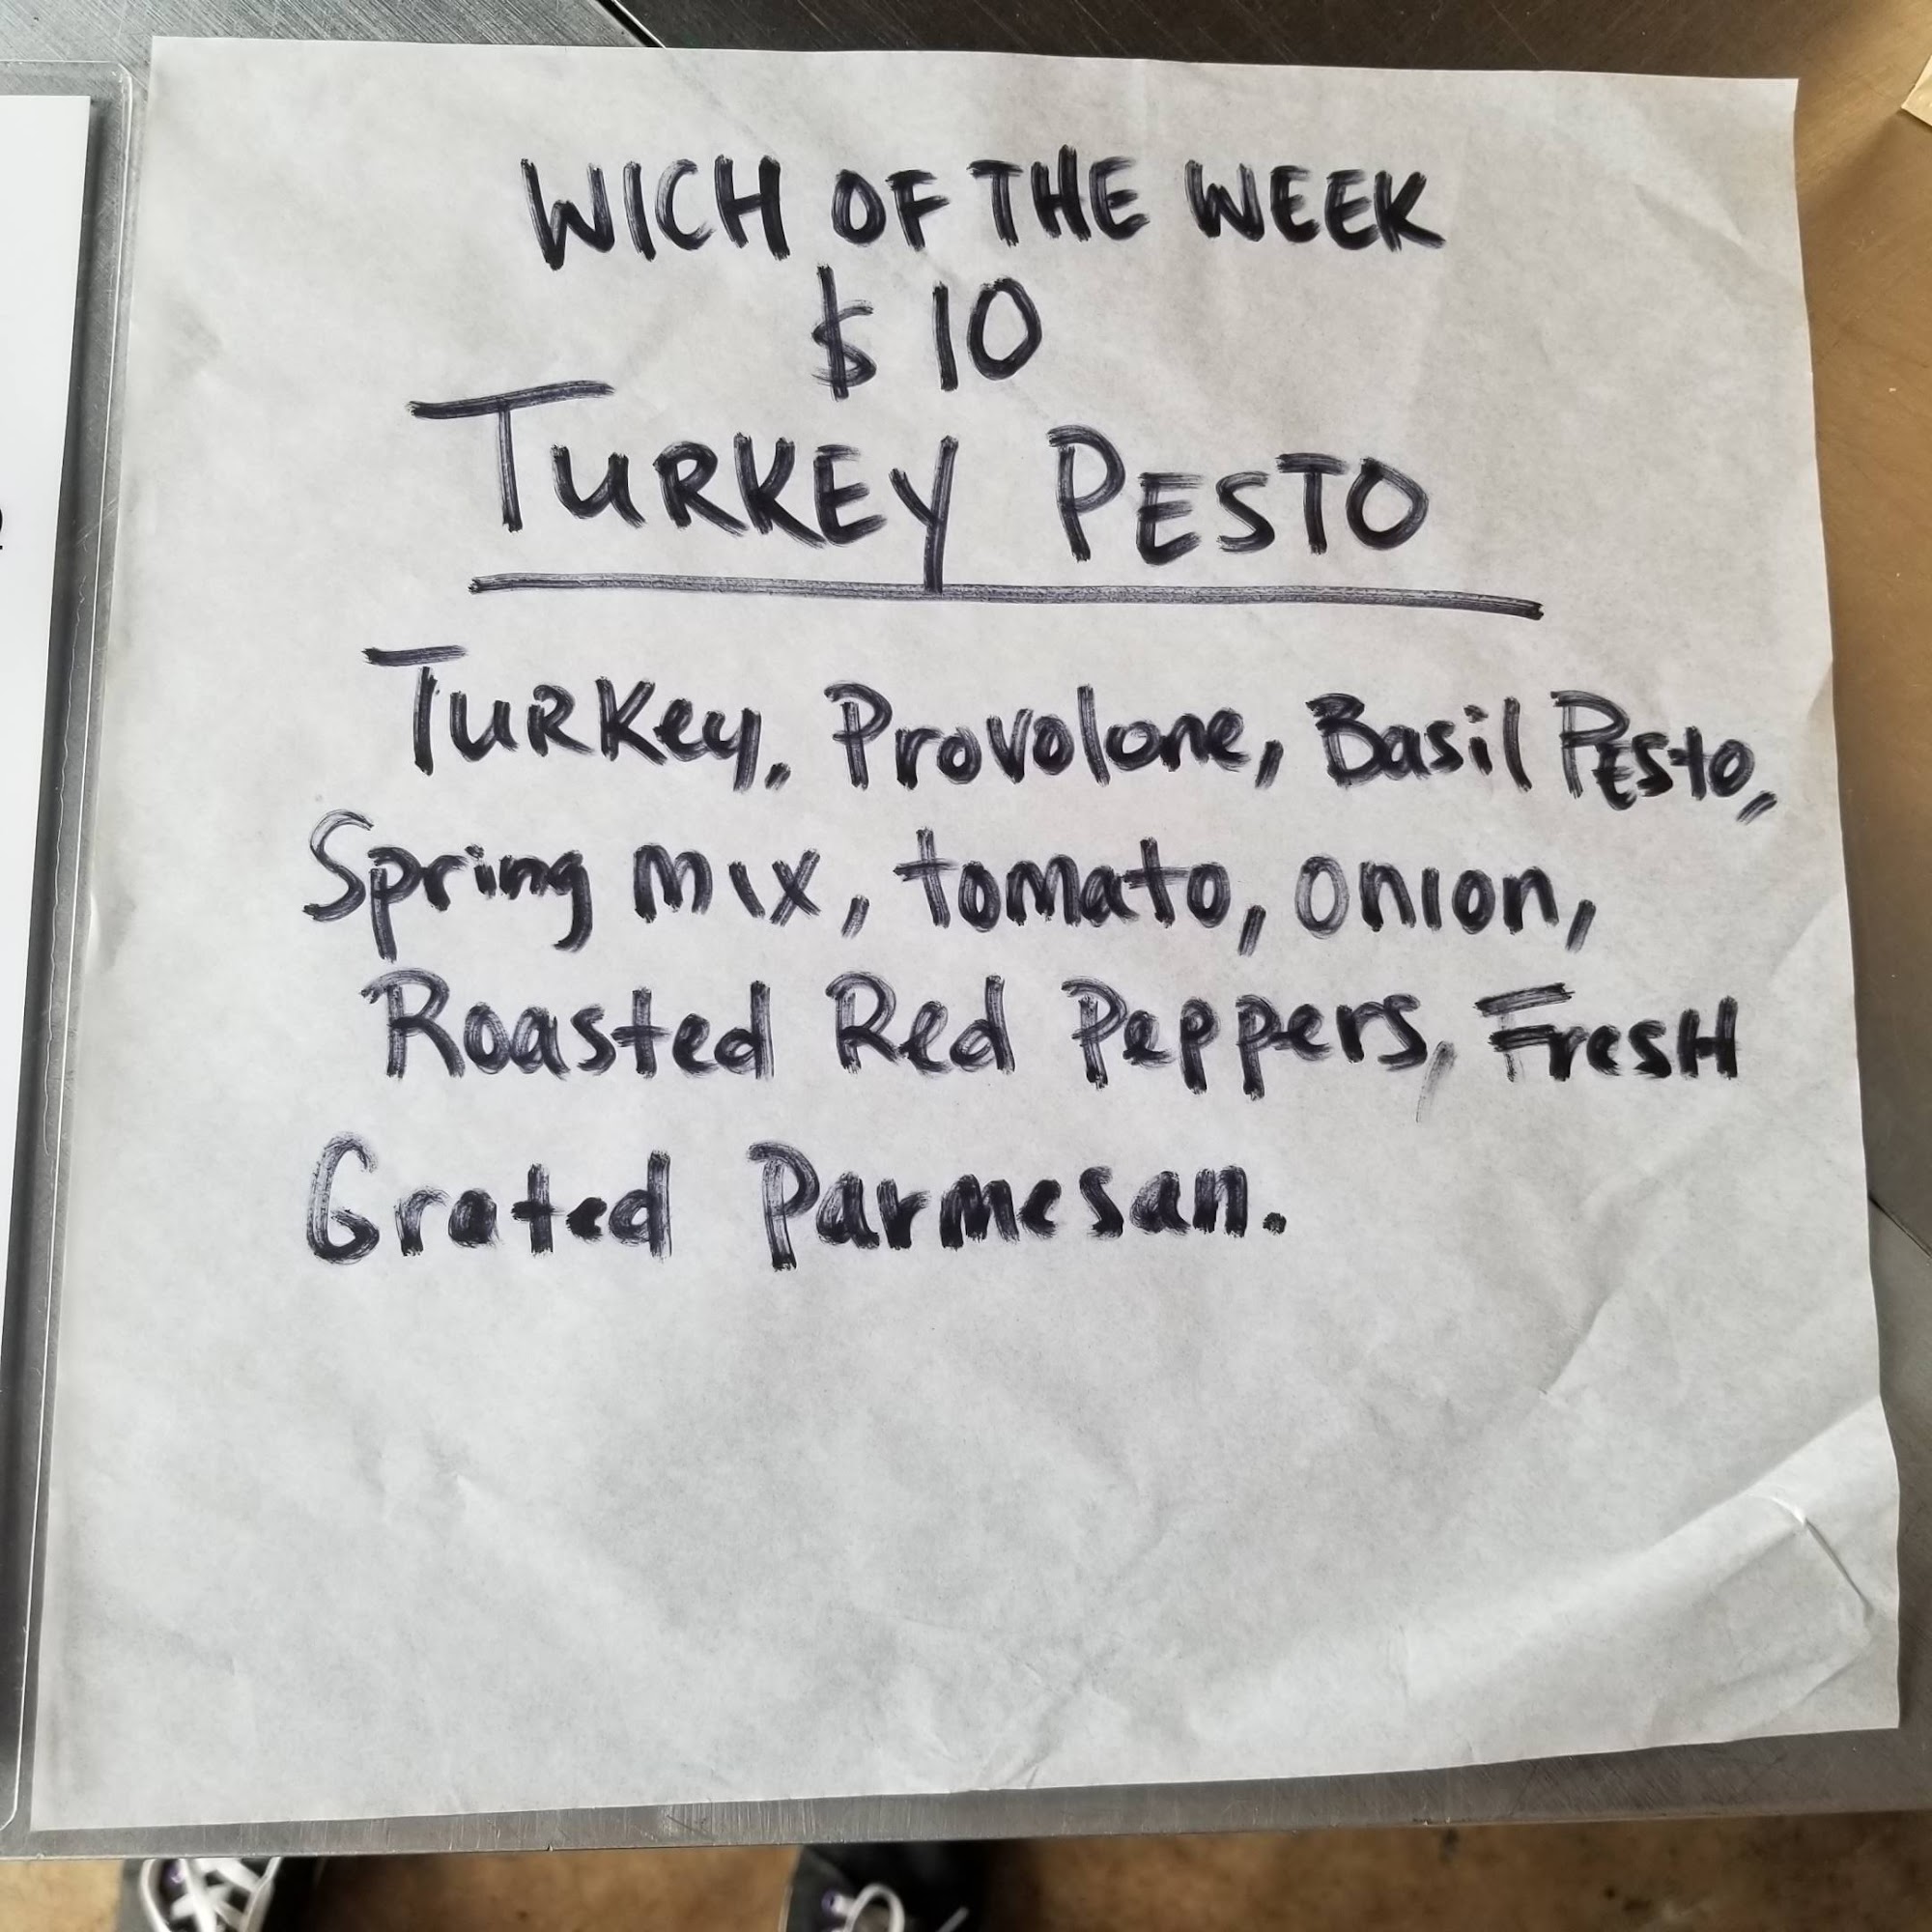 WICH OF THE WEEK
$10
TURKEY PESTO
TURKey, Provolone, Basil PEsto,
Spring mix, tomato, onion,
Roasted Red Peppers, FresH
Grated Parmesan.